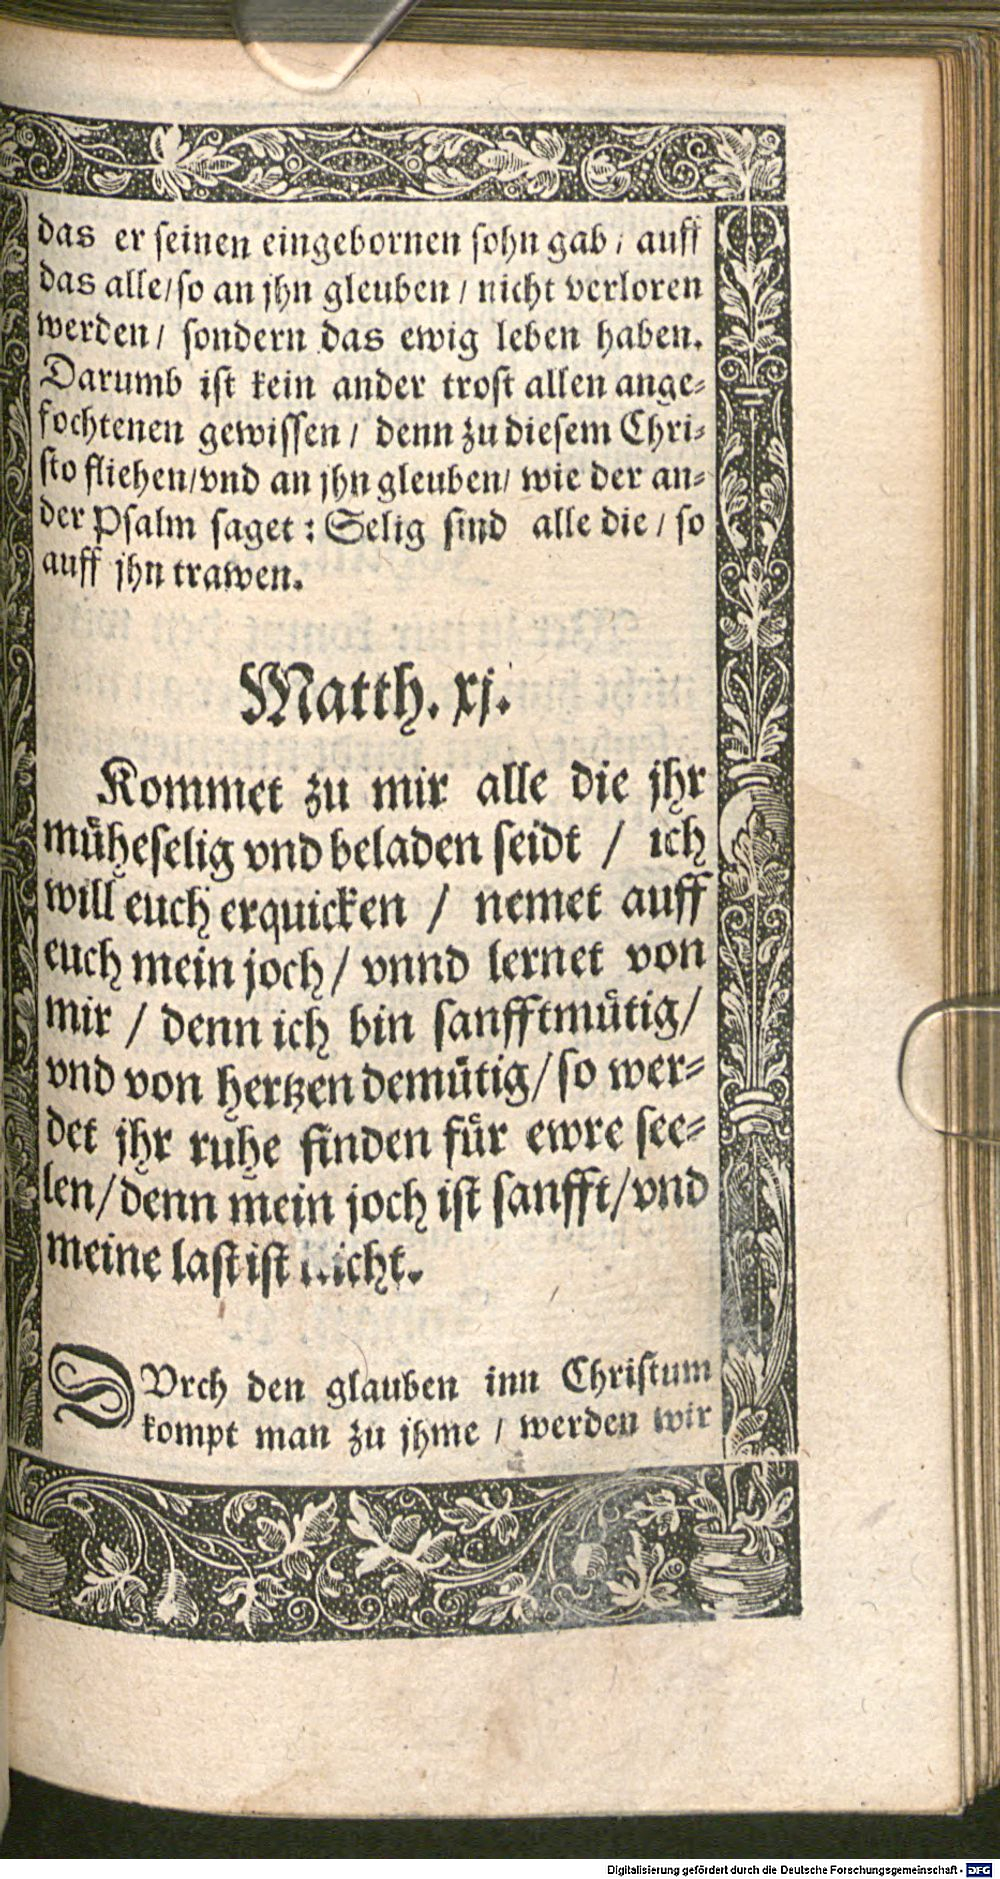 das er seinen eingebornen sohn gab / auff
das alle/so an jhn gleuben / nicht verloren
werden / sondern das ewig leben haben.
Darumb ist kein ander trost allen ange-
fochtenen gewissen / denn zu diesem Chri-
sto fliehen/vnd an jhn gleuben/ wie der an-
der Psalm saget : Selig sind alle die / so
auff jhn trawen.
Matth. xj.
Kommet zu mir alle die jhr
müheselig vnd beladen seidt / ich
will euch erquicken / nemet auff
euch mein joch / vnnd lernet von
mir / denn ich bin sanfftmütig/
vnd von hertzen demütig/ so wer-
det jhr ruhe finden für ewre see-
len/denn mein joch ist sanfft/vnd
meine last ist
DVrch den glauben inn Christum
kompt man zu jhme / werden wir
Digitalisierung gefördert durch die Deutsche Forschungsgemeinschaft - DFG